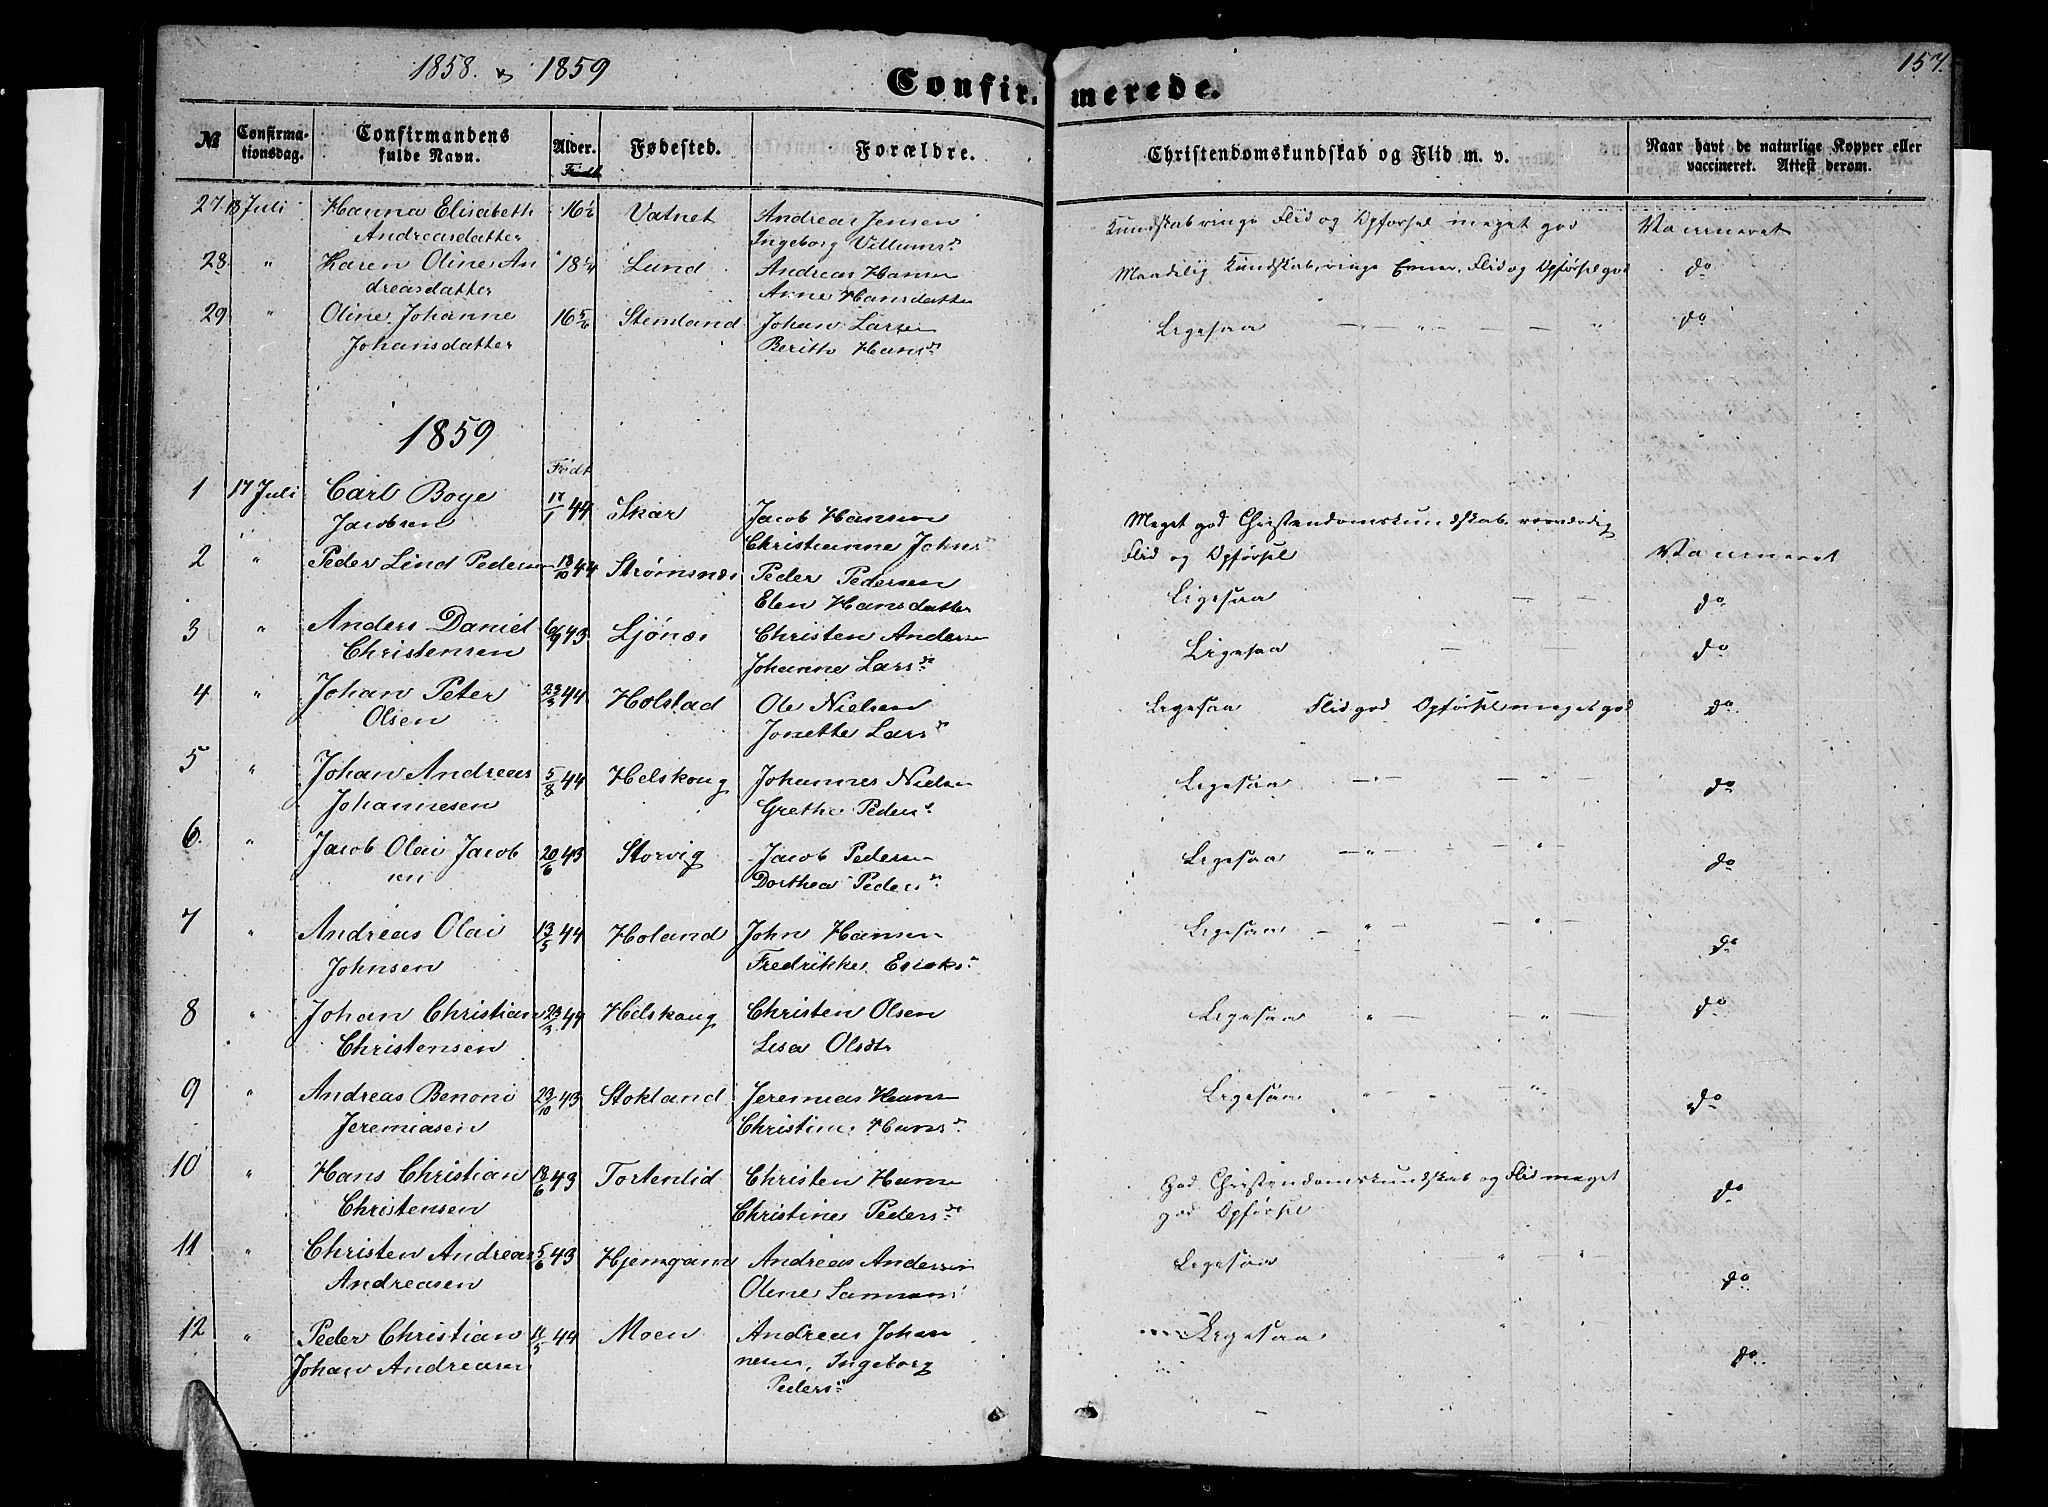 1858 & 1859
157.
Confirmerede.
№ Confirmationsdag. Confirmandens fulde Navn. Alder. Født Fødested. Forældre. Christendomskundskab og Flid m. v. Naar havt de naturlige Kopper eller vaccineret. Attest derom.
27. 18 Juli Hanna Elisabeth 16 Vatnet Andreas Jensen Kundskab ringe Flid og Opførsel meget god
Andreasdatter Ingeborg Villums
28 " Karen Oline An 18 1/4 Lund Andreas Hansen Maadelig Kundskab, ringe Evner, Flid og Opførsel god do
dreasdatter Anne Hansdatter
29 " Oline Johanne 16 5/6 Stemland Johan Larsen Ligesaa — " — " — — " do
Johansdatter Beritte Hansd
1859
Født
1 17 Juli Carl Boye 17/1 44 Skar Jacob Hansen Meget god Christendomskundskab
Jacobsen Christianne Johns Flid og Opførsel
2 " Peder Lind Pedersen 13/10 44 Strømsnæs Peder Pedersen Ligesaa — — do
Elen Hansdatter
3 " Anders Daniel 6/9 43 Ljønæs Christen Andersen Ligesaa — — do
Christensen Johanne Larsda
4 " Johan Peter 23/3 44 Holstad Ole Nielsen Ligesaa Flid god Opførsel meget god do
Olsen Jonette Larsd
5 " Johan Andreas 5/8 44 Helskoug Johannes Nielsen Ligesaa — " — — " — do
Johannesen Grethe Peders
6. " Jacob Olai Jacob 20/6 43 Storvig Jacob Pedersen Ligesaa — " — — " do
sen Dorthea Pedersd
7 " Andreas Olai 13/5 44 Holand John Hansen Ligesaa — " — — " — do
Johnsen Fredrikke Ericks
8 " Johan Christian 23/3 44 Helskoug Christen Olsen Ligesaa " — — " — do
Christensen Lisa Olsdt
9 " Andreas Benoni 23/10 43 Stokland Jeremias Hansen Ligesaa " — — " — do
Jeremiasen Christine Hansd
10 " Hans Christian 18/6 43 Tortenlid Christen Hansen God Christendomskundskab og Flid meget do
Christensen Christine Pedersda god Opførsel
11 " Christen Andreas 5/6 43 Hjemgam Andreas Andersen Ligesaa " — " — do
Andreasen Oline
12 " Peder Christian 11/5 44 Moen Andreas Johan Ligesaa " " do
Johan Andreasen nesen, Ingeborg
Peders